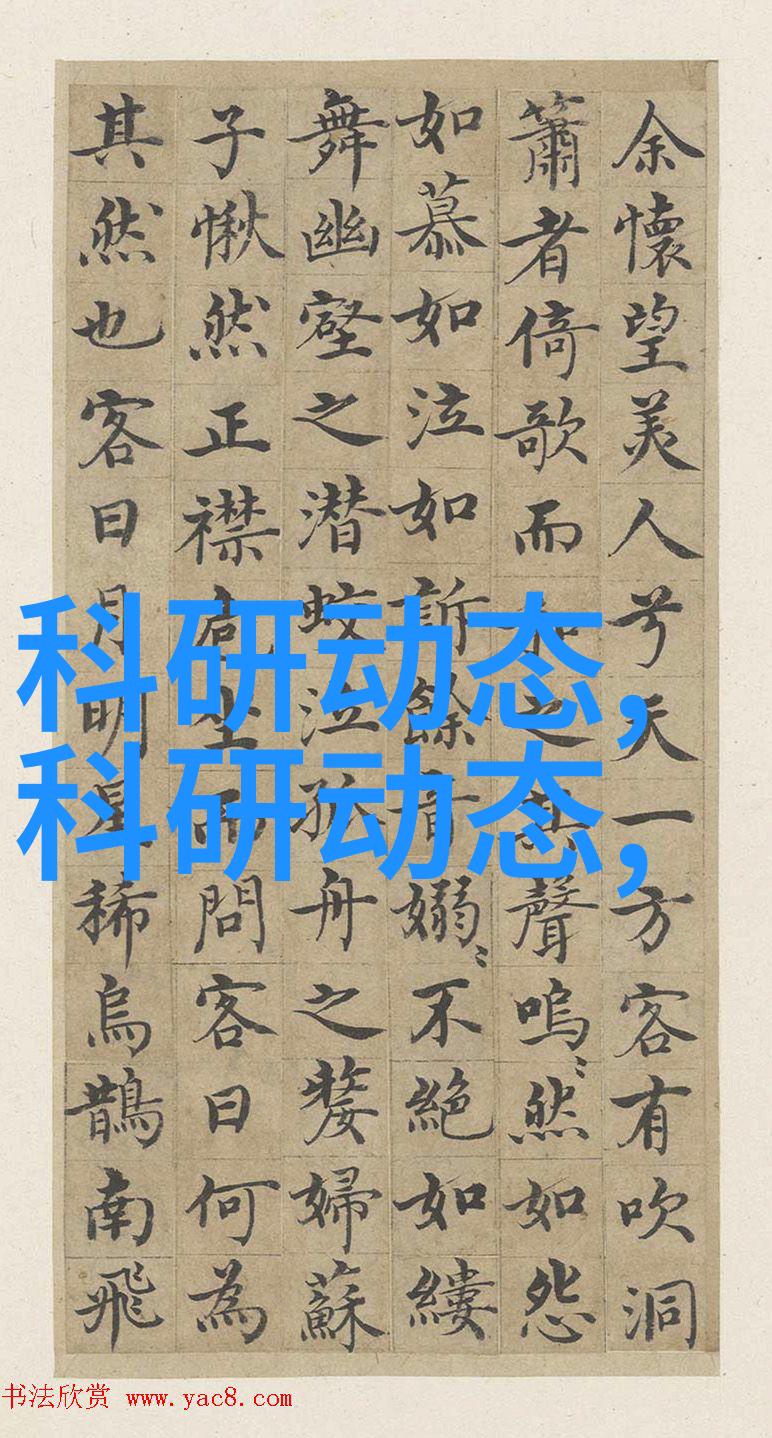 余懷望美人兮天一方客有吹洞
簫者倚歌而和之其聲嗚〻然如怨
如慕如泣如訴餘音嫋〻不絕如縷
舞幽壑之潜蛟泣孤舟之嫠婦蘇
子愀然正襟危坐而問客曰何為
其然也客曰月明星稀烏鵲南飛
科研动态,
科研动态,
书法欣赏 www.yac8.com